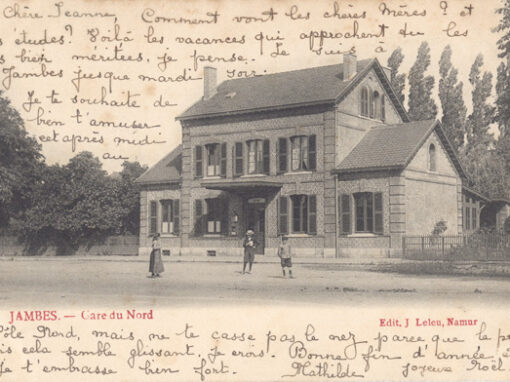 Chère Jeanne, Comment vont les chères Mères ? et
études ? Voilà les vacances qui approchent du les
bien méritées, je pense. Je suis à
Jambes jusque mardi soir
Je te souhaite de
bien t'amuser
cet après midi
au
JAMBES. — Gare du Nord
Edit. J Leleu, Namur
Pôle Nord, mais ne te casse pas le nez parce que le
cela semble glissant, je crois. Bonne fin d'année
t'embrasse bien fort. Mathilde Joyeux Noël